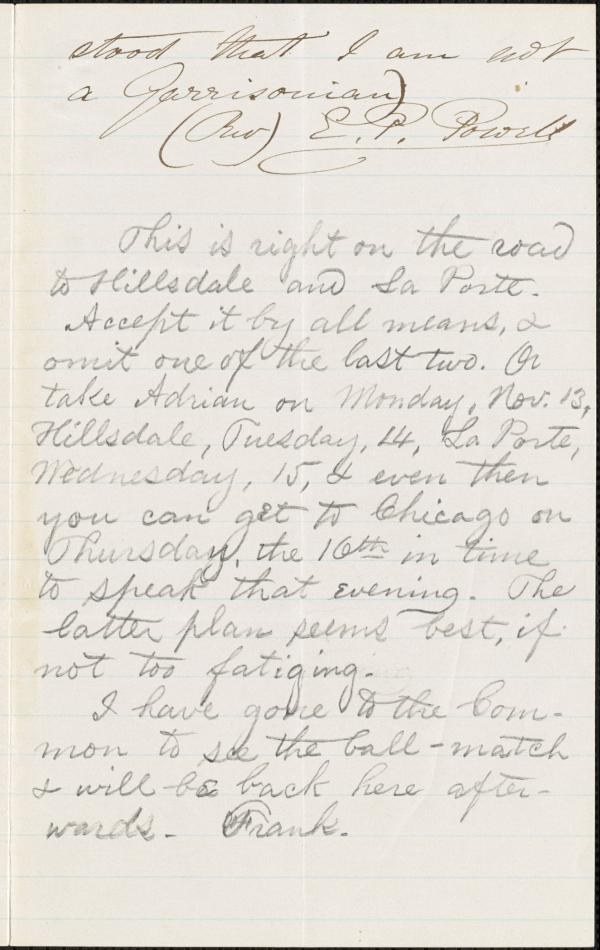 stood that I am not
a Garrisonian)
(Rev) E. P. Powell
This is right on the road
to Hillsdale and La Porte.
Accept it by all means, &
omit one of the last two. Or
take Adrian on Monday, Nov. 13,
Hillsdale, Tuesday, 14, La Porte,
Wednesday, 15, & even then
you can get to Chicago on
Thursday, the 16th in time
to speak that evening. The
latter plan seems best, if
not too fatiging.
I have gone to the Com-
mon to see the ball-match
& will be back here after-
wards - Frank.